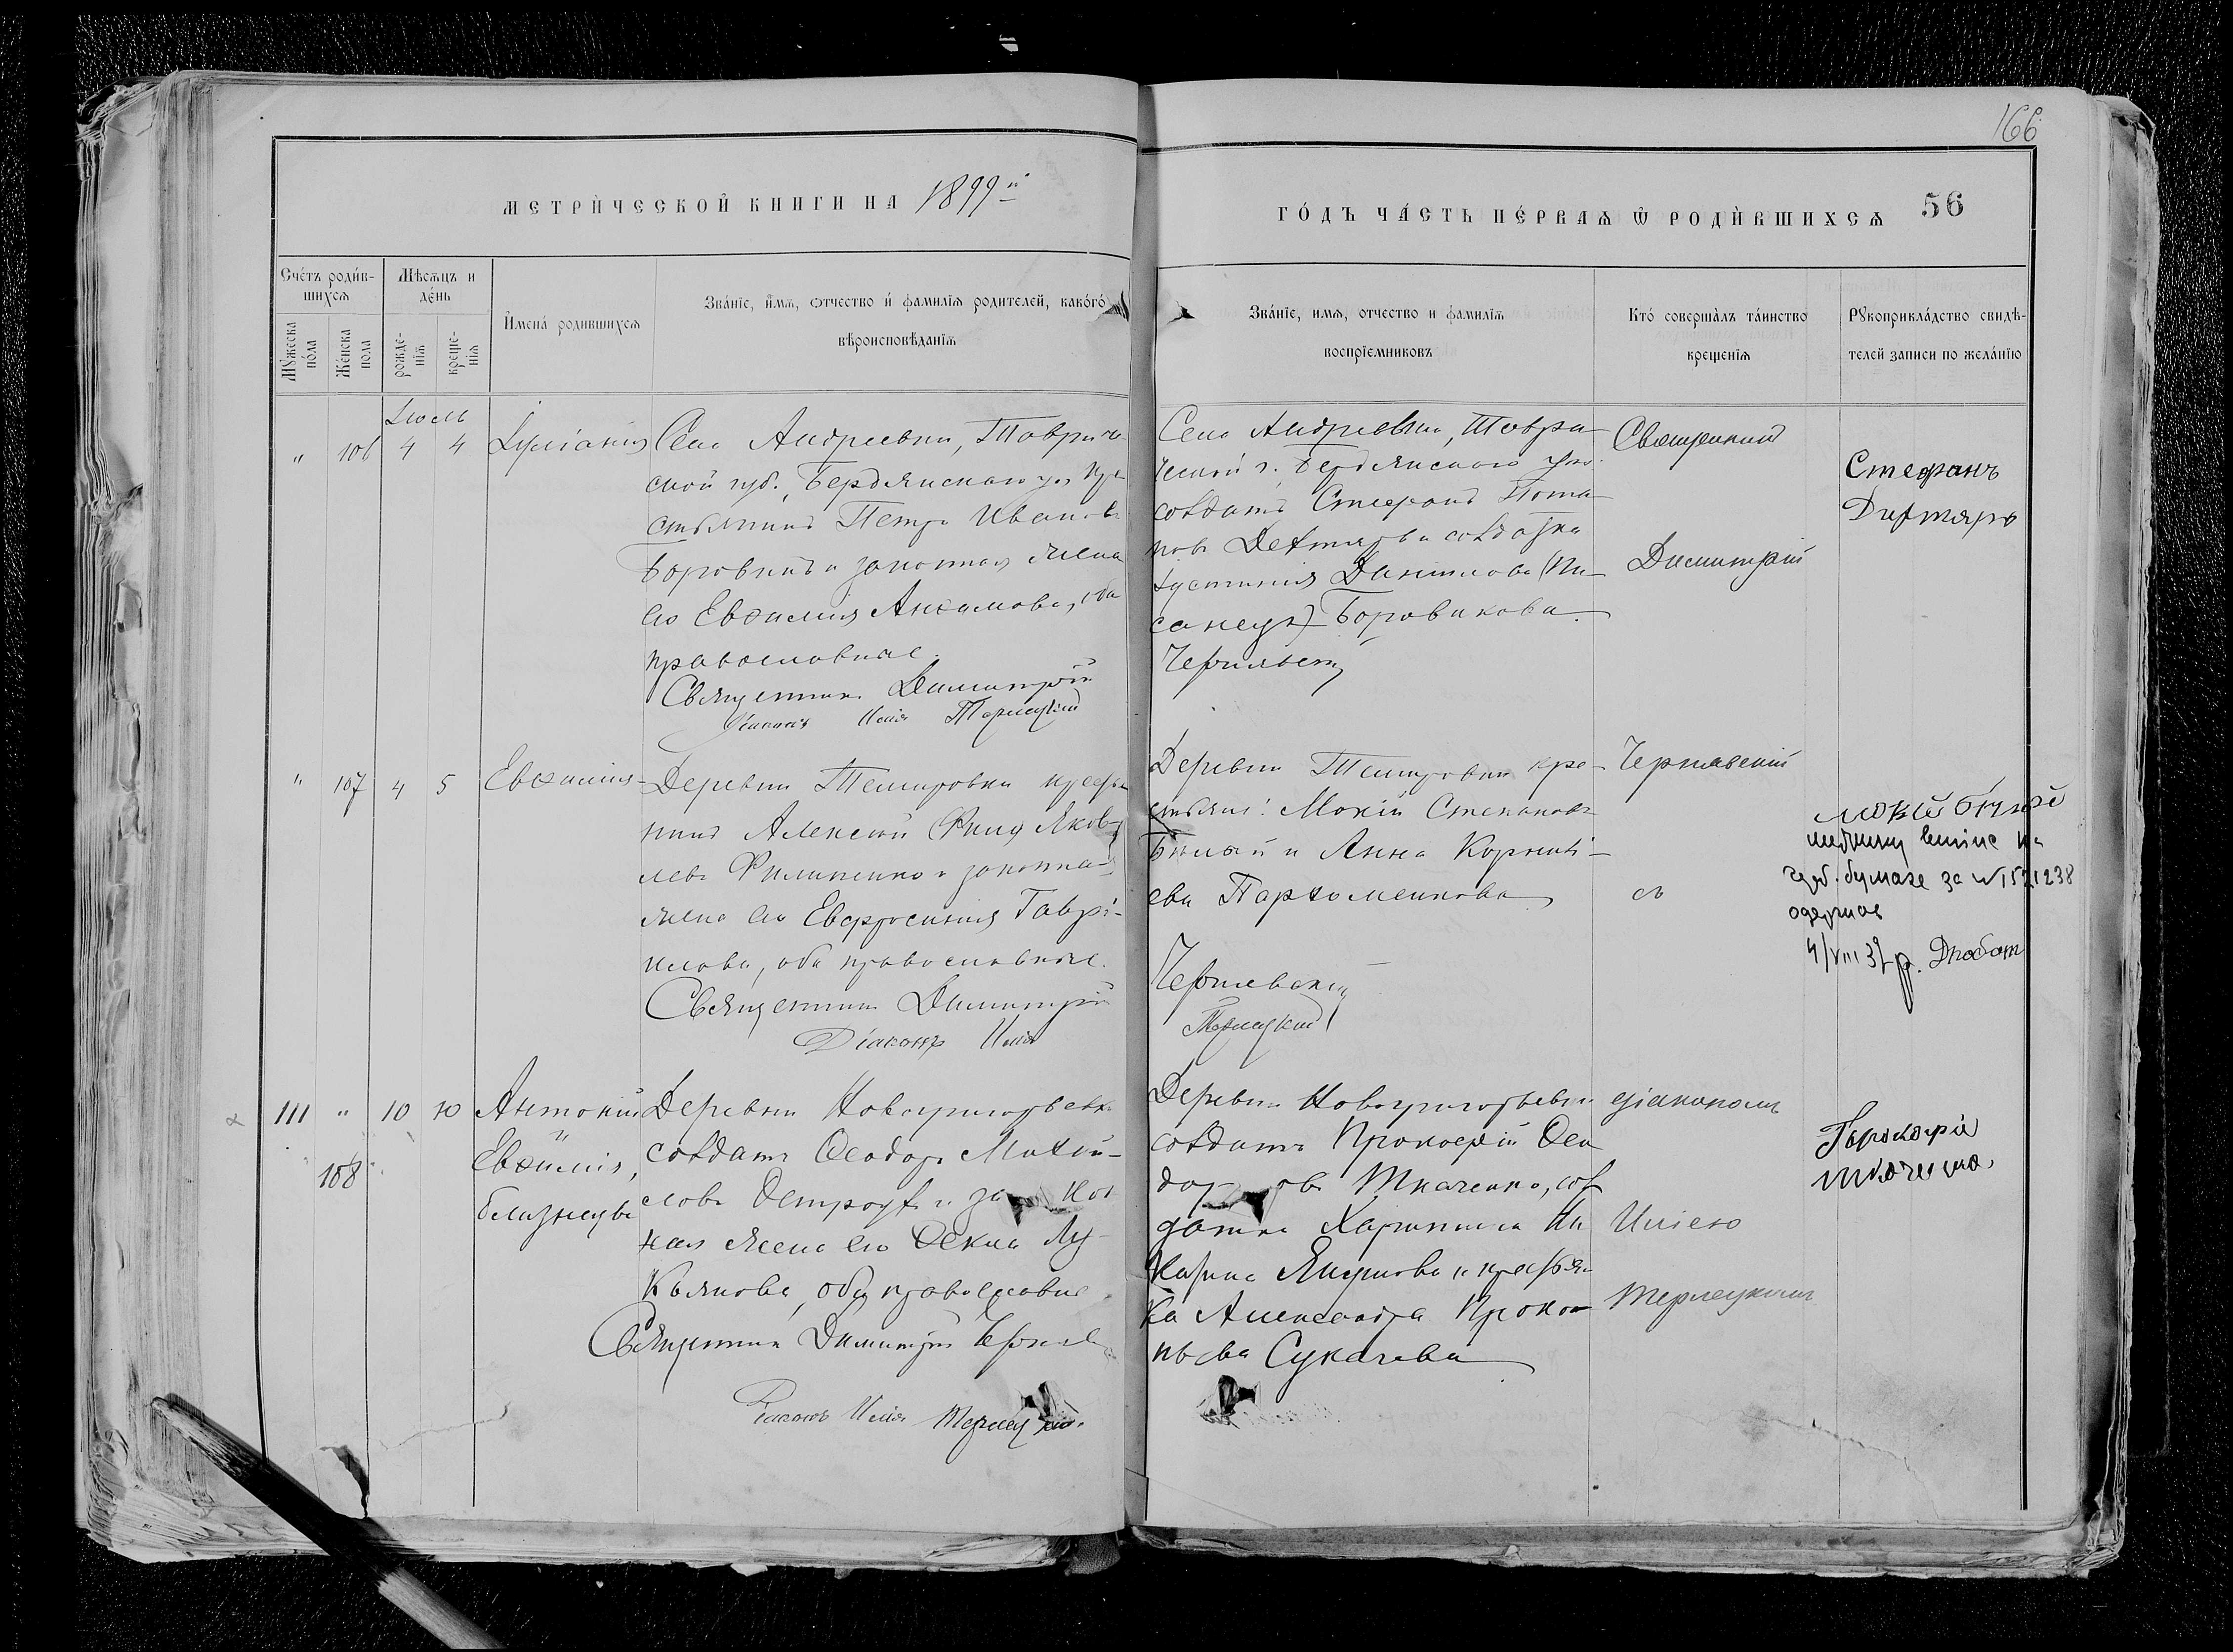 166
МЕТРИЧЕСКОЙ КНИГИ НА 1899й
ГОДЪ ЧАСТЬ ПЕРВАЯ Ѡ РОДИВШИХСЯ 56
Счетъ родив-
шихся
Мѣсяцъ и
день
Мужеска
пола
Женска
пола
рожде-
нія
креще-
нія
Имена родившихся
Званіе, имя, отчество и фамилія родителей, какого
вѣроисповѣданія
Званіе, имя, отчество и фамилія
воспріемниковъ
Кто совершалъ таинство
крещенія
Рукоприкладство свидѣ-
телей записи по желанію
Іюль
" 106 4 4 Іуліанія
Села Андреевки,Тавриче-
ской губ., Бердянскаго у. кре
стьянинъ Петръ Иванов
Боровикъ и законная жена
его Евѳимія Акимова, оба
православные.
Священникъ Димитрій
Діаконъ Илія Терлецкій
Села Андреевки, Таври
ческой г. Бердянскаго уѣз.
солдатъ Стефанъ Пота
повъ Дехтяръ и солдатка
Іустинія Данилова (Пи-
санецъ) Боровикова.
Чернявскій
Священникъ
Димитрій
Стефанъ
Дегтяръ
" 107 4 5 Евѳимія
Деревни Темировки крестья
нинъ Алексій Яков-
левъ Филипенко и законная
жена его Евфросинія Гаврі-
илова, оба православные.
Священникъ Димитрій
Діаконъ Илія
Деревни Темировки кре-
стьяне: Мокій Степановъ
Бѣлый и Анна Корнилі-
ева Пархоменкова
Чернявскій
Терлецкій
Чернявскій
съ
Мокій Бѣлый
на
бумазе за № 1521238
одержав
4/VIII 39 р.
111 " 10 10 Антоній
" 108 Евѳимія,
близнецы
Деревни Новогригорьевки
солдатъ Ѳеодоръ Михай-
ловъ Остроух и закон
ная жена его Ѳекла Лу-
кьянова, оба православные
Священникъ Димитрій Чернявс
Діаконъ Илія Терлецкій.
Деревни Новогригорьевки
солдатъ Прокофій Ѳео
доровъ Ткаченко, сол
датка Харитина
и крестьян
ка Александра Проко
пьева Сукачева
діакономъ
Иліею
Терлецкимъ
Прокофій
Ткаченко.